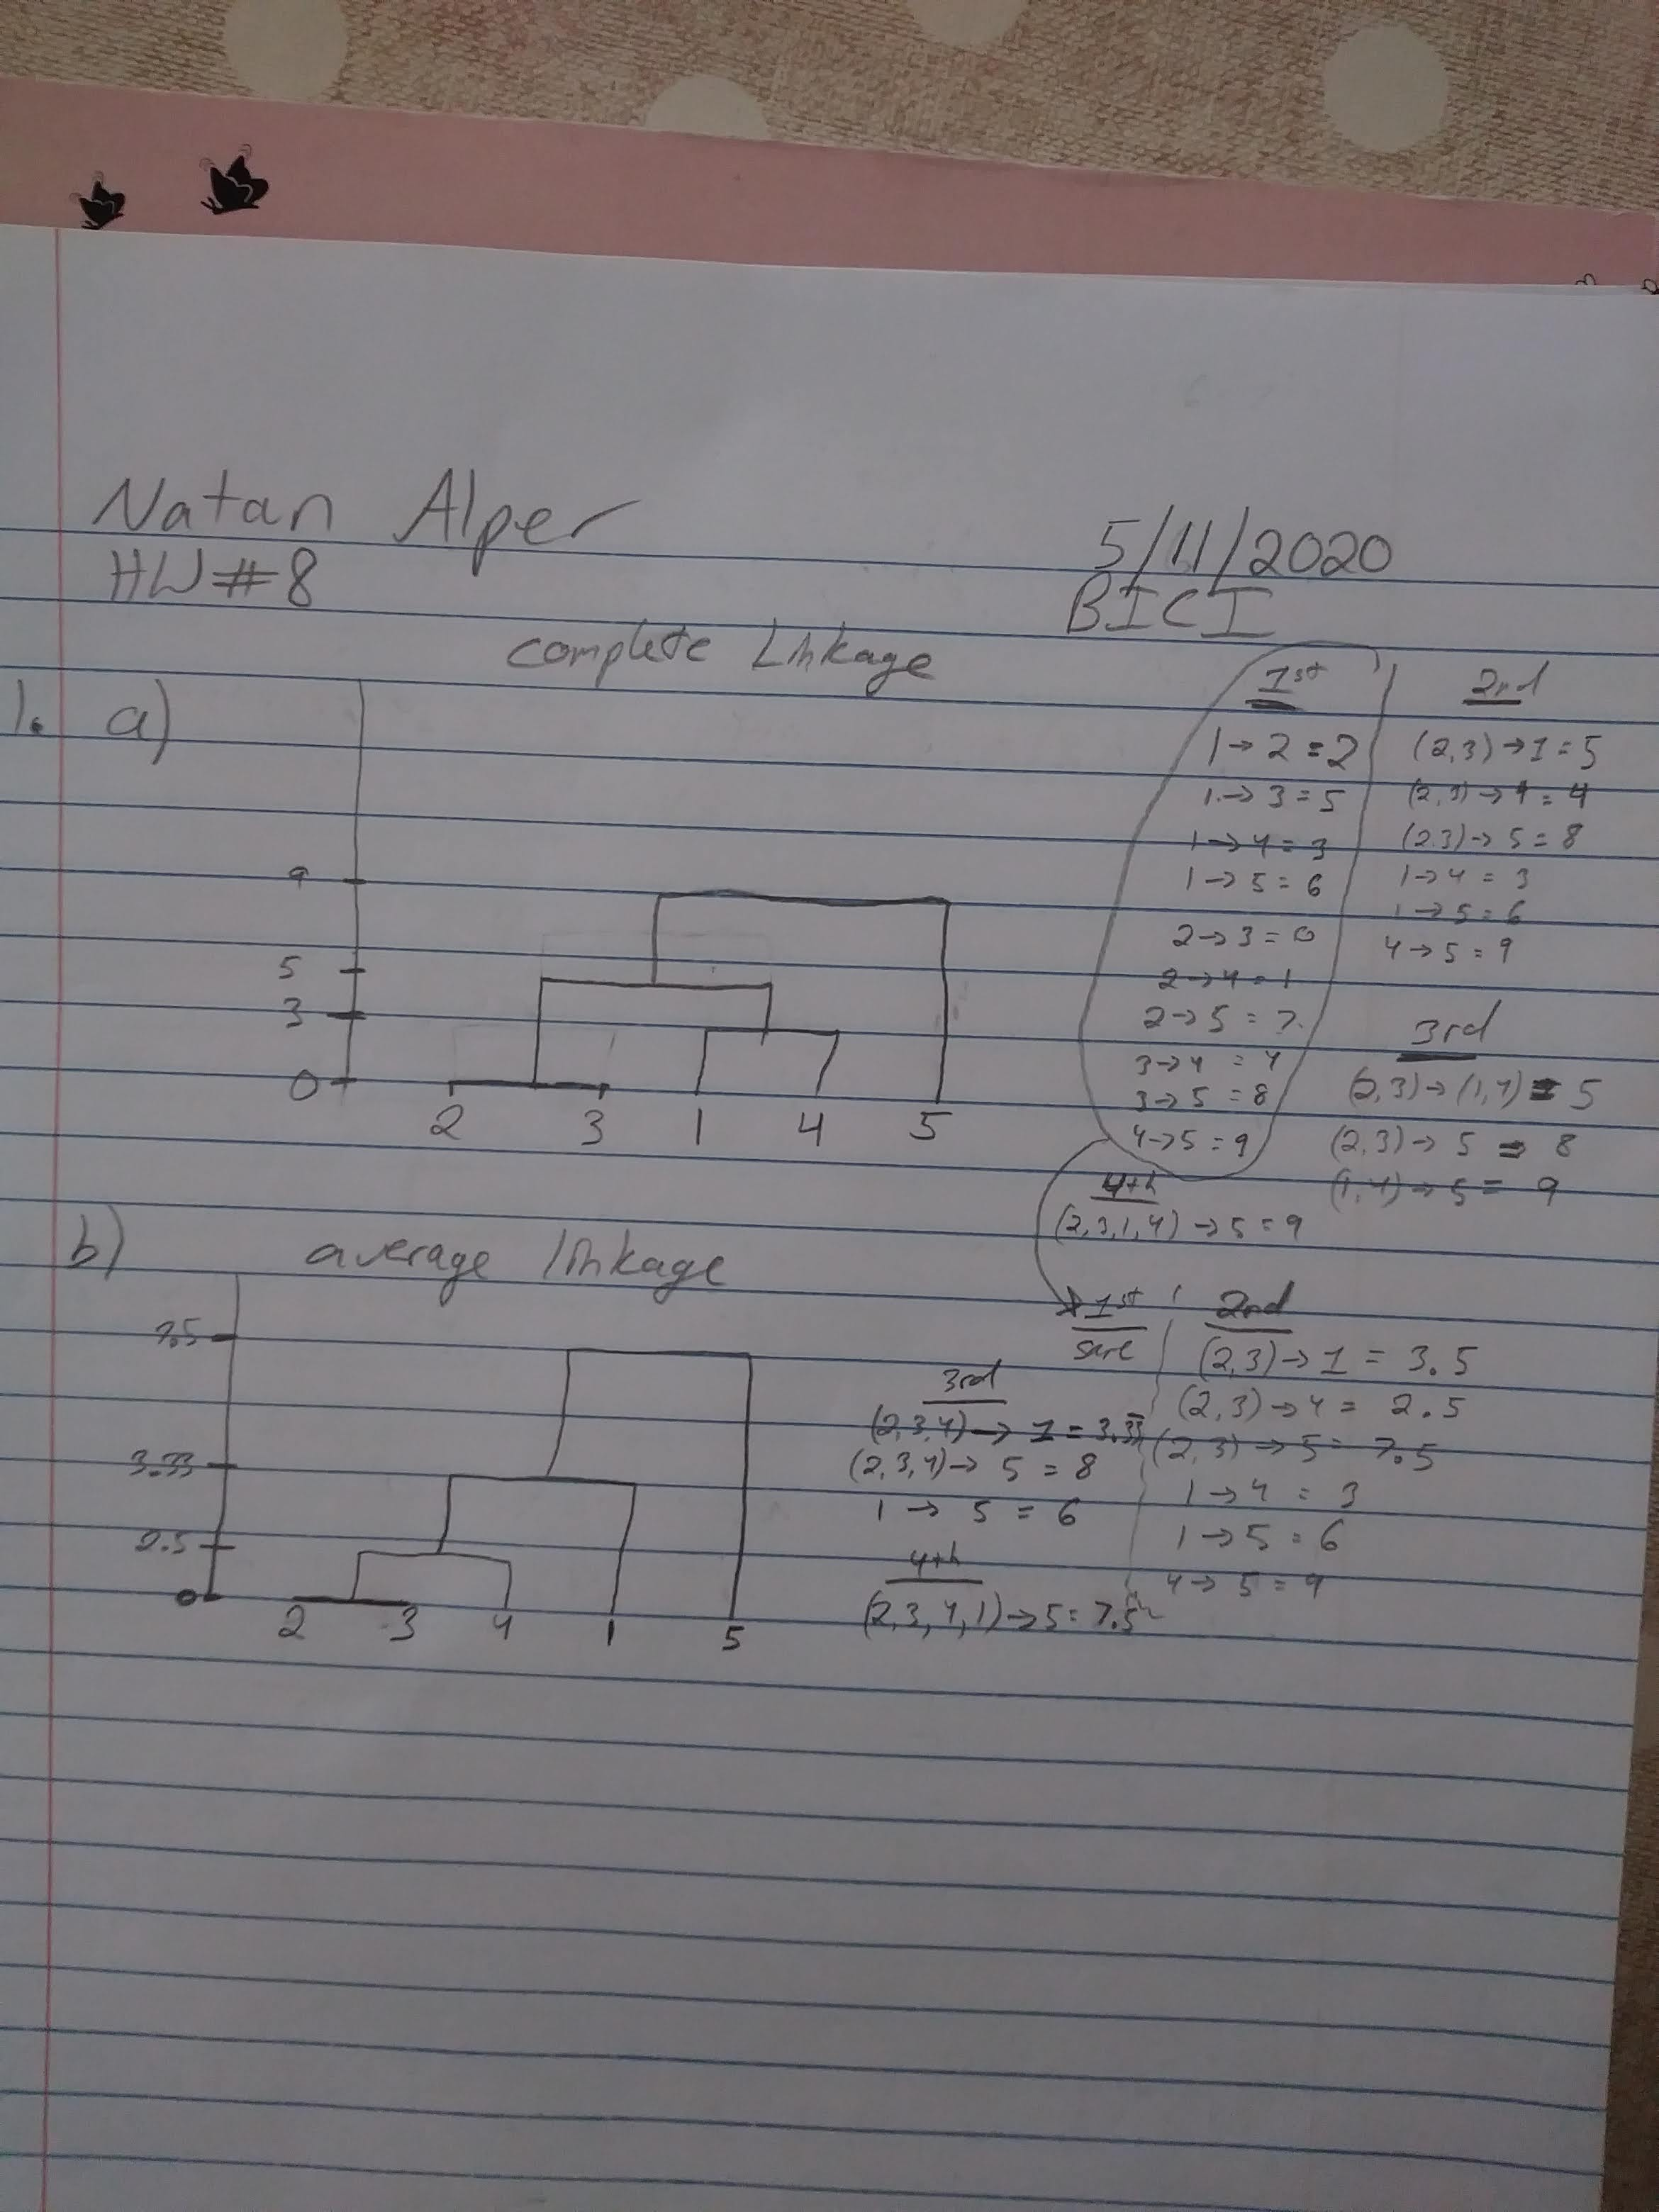 Natan Alper
5/11/2020
HW#8
BICI
complete Linkage
1. a)
9
5
3
0
2 3 1 4 5
1st
1→2=2
1→3=5
1→4=3
1→5=6
2→3=0
2→4=1
2→5=7
3→4=4
3→5=8
4→5=9
2nd
(2,3)→1=5
(2,3)→4=4
(2,3)→5=8
1→4=3
1→5=6
4→5=9
3rd
(2,3)→(1,4)=5
(2,3)→5=8
(1,4)→5=9
4th
(2,3,1,4)→5=9
b) average linkage
7.5
3.33
2.5
0
2 3 4 1 5
1st
2nd
(2,3)→1=3.5
(2,3)→4=2.5
(2,3)→5=7.5
1→4=3
1→5=6
4→5=9
3rd
(2,3,4)→1=3.33
(2,3,4)→5=8
1→5=6
4th
(2,3,4,1)→5=7.5